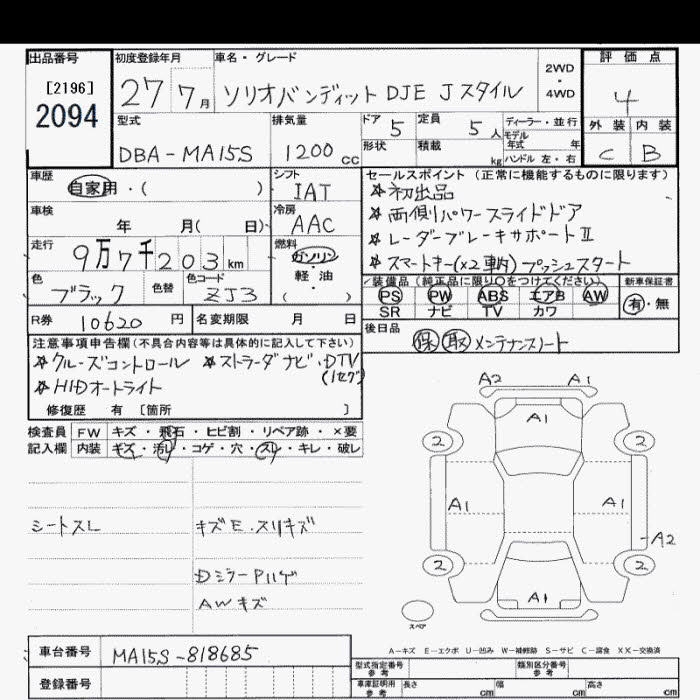 出品番号 初度登録年月 車名・グレード 評価点
[2196] 27 7月 ソリオバンディット DJE Jスタイル 2WD・4WD 4
2094
型式 排気量 ドア 5 定員 5人 ディーラー・並行 外装 内装
モデル年式 年
DBA-MA15S 1200cc 形状 積載 kg ハンドル 左・右 C B
車歴 シフト セールスポイント (正常に機能するものに限ります)
自家用・( ) IAT ☆初出品
車検 冷房 ☆両側パワースライドドア
年 月( 日) AAC ☆レーダーブレーキサポートⅡ
走行 燃料
9万7千203km ガソリン ☆スマートキー(×2車内)プッシュスタート
軽油
色 色替 色コード ( ) 装備品 (純正品に限り○をつけてください) 新車保証書
ブラック ZJ3 PS PW ABS エアB AW 有・無
SR ナビ TV カワ
R券 10620円 名変期限 月 日 後日品
注意事項申告欄(不具合内容等は具体的に記入して下さい) 保 取 メンテナンスノート
☆クルーズコントロール ☆ストラーダナビ・DTV
(1セグ)
☆HIDオートライト
修復歴 有 [箇所 ]
検査員 FW キズ・飛石・ヒビ割・リペア跡・×要
記入欄 内装 キズ・汚レ・コゲ・穴・スレ・キレ・破レ
A2 A1
A1
2 2
A1 A1
A2
2 2
A1
スペア
シートスレ キズE.スリキズ
DミラーPハゲ
AWキズ
A-キズ E-エクボ U-凹み W-補修跡 S-サビ C-腐食 XX-交換済
車台番号 MA15S-818685
型式指定番号 参考 類別区分番号 参考
登録番号 車庫証明用 参考 長さ cm 幅 cm 高さ cm